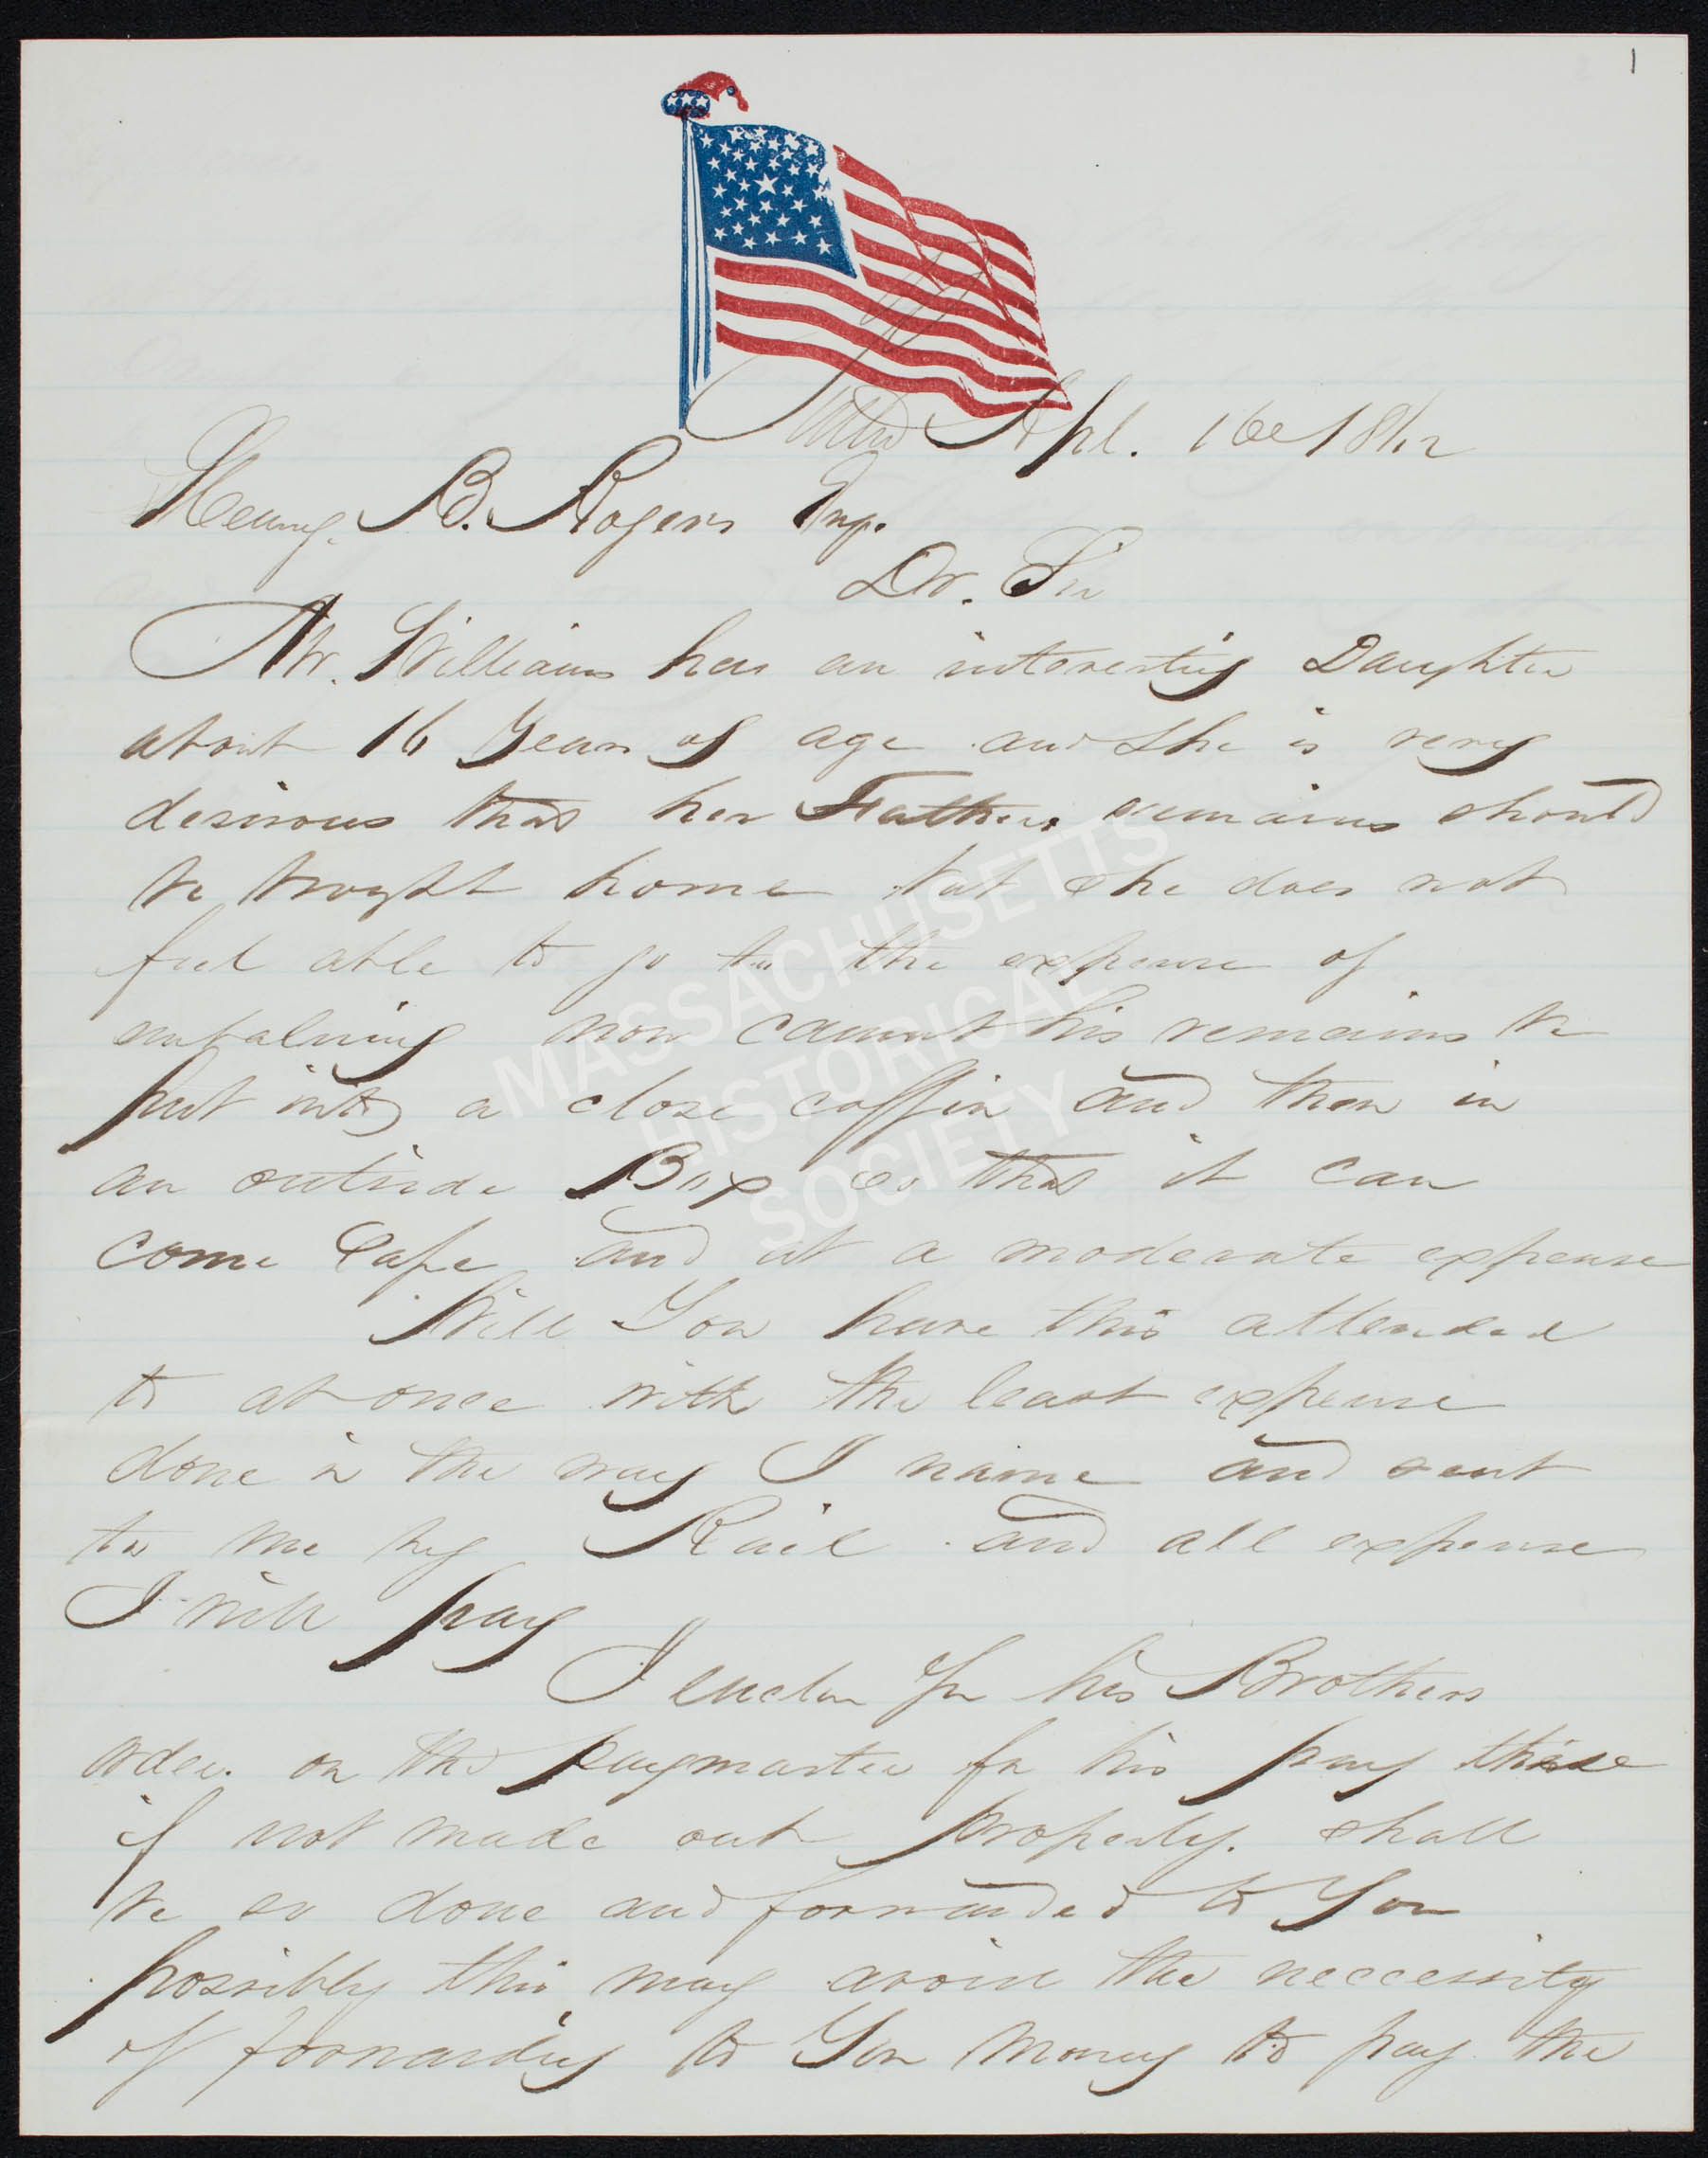 1
Apl. 16 1862
Henry. B. Rogers Esqr.
Dr. Sir
Mr. Williams has an interesting Daughter
about 16 Years of age and she is very
desirous that her Fathers remains should
be broght home but she does not
feel able to go to the expense of
embalming now cannot his remains be
put into a close coffin and then in
an outside Box so that it can
come safe and at a moderate expense
Will You have this attended
to at once with the least expense
done in the way I name and sent
to me by Rail and all expense
I will pay
I enclose You his Brothers
order. on the paymaster for his pay these
if not made out properly. shall
be so done and forwarded to You
possibly this may avoid the neccessity
of forwarding to You money to pay the
MASSACHUSETTS
HISTORICAL
SOCIETY